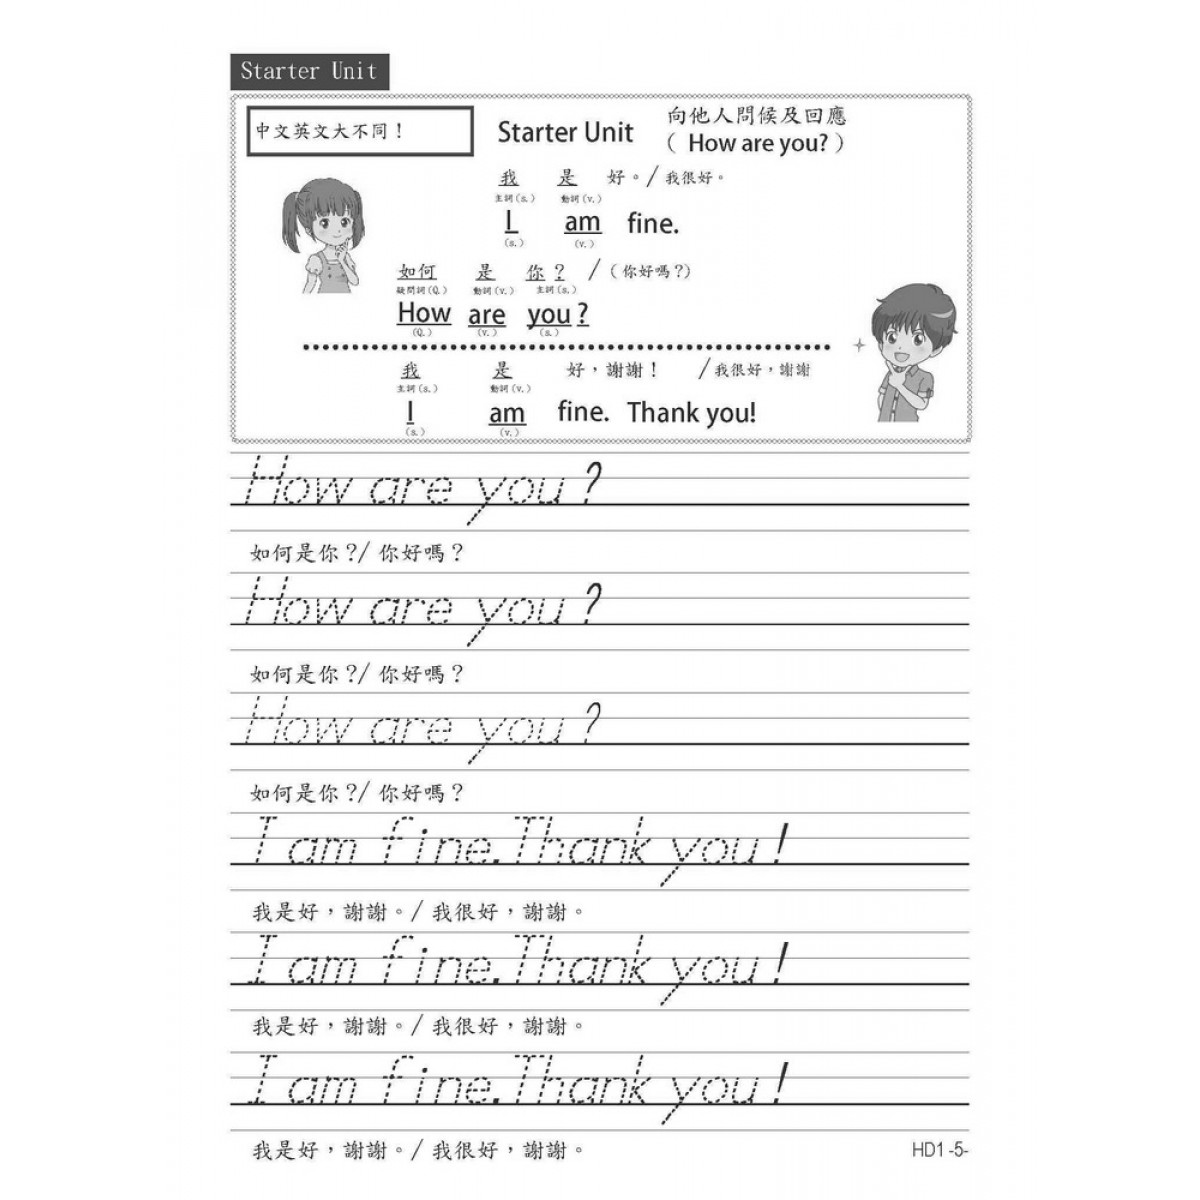 Starter Unit
中文英文大不同！
Starter Unit
向他人問候及回應
（ How are you? ）
我 是 好。/ 我很好。
主詞(s.) 動詞(v.)
I am fine.
(s.) (v.)
如何 是 你 ？ /（你好嗎？）
疑問詞(Q.) 動詞(v.) 主詞(s.)
How are you ?
(Q.) (v.) (s.)
我 是 好，謝謝！ / 我很好，謝謝
主詞(s.) 動詞(v.)
I am fine. Thank you!
(s.) (v.)
How are you ?
如何是你？/ 你好嗎？
How are you ?
如何是你？/ 你好嗎？
How are you ?
如何是你？/ 你好嗎？
I am fine. Thank you !
我是好，謝謝。/ 我很好，謝謝。
I am fine. Thank you !
我是好，謝謝。/ 我很好，謝謝。
I am fine. Thank you !
我是好，謝謝。/ 我很好，謝謝。
HD1 -5-